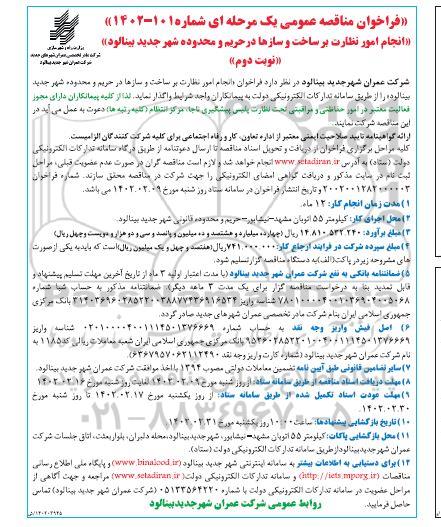 «فراخوان مناقصه عمومی یک مرحله ای شماره ۱۰۱-۱۴۰۲»
«انجام امور نظارت بر ساخت و سازها در حریم و محدوده شهر جدید بینالود»
«نوبت دوم»
وزارت راه و شهرسازی
شرکت مادر تخصصی عمران شهرهای جدید
شرکت عمران شهر جدید بینالود
شرکت عمران شهر جدید بینالود در نظر دارد فراخوان «انجام امور نظارت بر ساخت و سازها در حریم و محدوده شهر جدید
بینالود» را از طریق سامانه تدارکات الکترونیکی دولت به پیمانکاران واجد شرایط واگذار نماید. لذا از کلیه پیمانکاران دارای مجوز
فعالیت معتبر در امور حفاظتی و مراقبتی تحت نظارت پلیس پیشگیری ناجا، مرکز انتظام (کلیه رتبه ها) دعوت به عمل می آید در
این مناقصه شرکت نمایند.
ارائه گواهینامه تایید صلاحیت ایمنی معتبر از اداره تعاون، کار و رفاه اجتماعی برای کلیه شرکت کنندگان الزامیست.
کلیه مراحل برگزاری فراخوان از دریافت و تحویل اسناد مناقصه تا ارسال دعوتنامه از طریق درگاه سامانه تدارکات الکترونیکی
دولت (ستاد) به آدرس www.setadiran.ir انجام خواهد شد و لازم است مناقصه گران در صورت عدم عضویت قبلی، مراحل
ثبت نام در سایت مذکور و دریافت گواهی امضای الکترونیکی را جهت شرکت در مناقصه محقق سازند. شماره فراخوان
۲۰۰۲۰۰۱۲۸۲۰۰۰۰۰۳ و تاریخ انتشار فراخوان در سامانه ستاد روز شنبه مورخ ۱۴۰۲.۰۲.۰۹ می باشد.
۱) مدت زمان انجام کار: ۱۲ ماه.
۲) محل اجرای کار: کیلومتر ۵۵ اتوبان مشهد-نیشابور-حریم و محدوده قانونی شهر جدید بینالود.
۳) مبلغ برآورد: ۱۴.۸۱۰.۵۳۲.۲۴۰ ریال (چهارده میلیارد و هشتصد و ده میلیون و پانصد و سی و دو هزار و دویست و چهل ریال)
۴) مبلغ سپرده شرکت در فرایند ارجاع کار: ۷۴۱.۰۰۰.۰۰۰ ریال (هفتصد و چهل و یک میلیون ریال) است که باید به یکی از صورت
های مشروحه زیر در پاکت (الف) به دستگاه مناقصه گزار تسلیم شود.
۵) ضمانتنامه بانکی به نفع شرکت عمران شهر جدید بینالود (با مدت اعتبار اولیه ۳ ماه از تاریخ آخرین مهلت تسلیم پیشنهاد و
قابل تمدید بنا به درخواست مناقصه گزار برای یک مدت ۳ ماهه دیگر) ضمانتنامه مذکور به حساب شبا شماره
شناسه واریز بانک مرکزی
جمهوری اسلامی ایران بنام شرکت مادر تخصصی عمران شهرهای جدید صادر گردد.
۶) اصل فیش واریز وجه نقد به حساب شماره شناسه واریز
بانک مرکزی جمهوری اسلامی ایران شعبه معاملات ریالی کد ۱۱۸۵ به
نام شرکت عمران شهر جدید بینالود (شماره کارت واریز وجه نقد ).
۷) سایر تضامین قانونی طبق آیین نامه تضمین معاملات دولتی مصوب ۱۳۹۴ با اخذ موافقت شرکت عمران شهر جدید بینالود.
۸) مهلت دریافت اسناد مناقصه از طریق سامانه ستاد: از روز شنبه مورخ ۱۴۰۲.۰۲.۰۹ لغایت روز شنبه مورخ ۱۴۰۲.۰۲.۱۶
۹) مهلت عودت اسناد تکمیل شده از طریق سامانه ستاد: از روز یکشنبه مورخ ۱۴۰۲.۰۲.۱۷ تا روز شنبه مورخ
۱۴۰۲.۰۲.۳۰.
۱۰) تاریخ بازگشایی پیشنهادها: ساعت ۱۰:۰۰ روز یکشنبه مورخ ۱۴۰۲.۰۲.۳۱
۱۱) محل بازگشایی پاکات: کیلومتر ۵۵ اتوبان مشهد- نیشابور، شهر جدید بینالود، محله دلبران، بلوار بعثت، اتاق جلسات شرکت
عمران شهر جدید بینالود از طریق سامانه تدارکات الکترونیکی دولت (ستاد).
۱۲) برای دستیابی به اطلاعات بیشتر به سامانه اینترنتی شهر جدید بینالود (www.binalood.ir) و پایگاه ملی اطلاع رسانی
مناقصات (http://iets.mporg.ir) و سامانه تدارکات الکترونیکی دولت (www.setadiran.ir) مراجعه و جهت آگاهی از
مراحل عضویت در سامانه تدارکات الکترونیکی دولت با شماره ۰۵۱۳۳۵۶۴۲۲۰ (شرکت عمران شهر جدید بینالود) تماس
حاصل فرمایید.
روابط عمومی شرکت عمران شهر جدید بینالود
۰۲۱-۸۸۳۴۹۶۷۰-۵